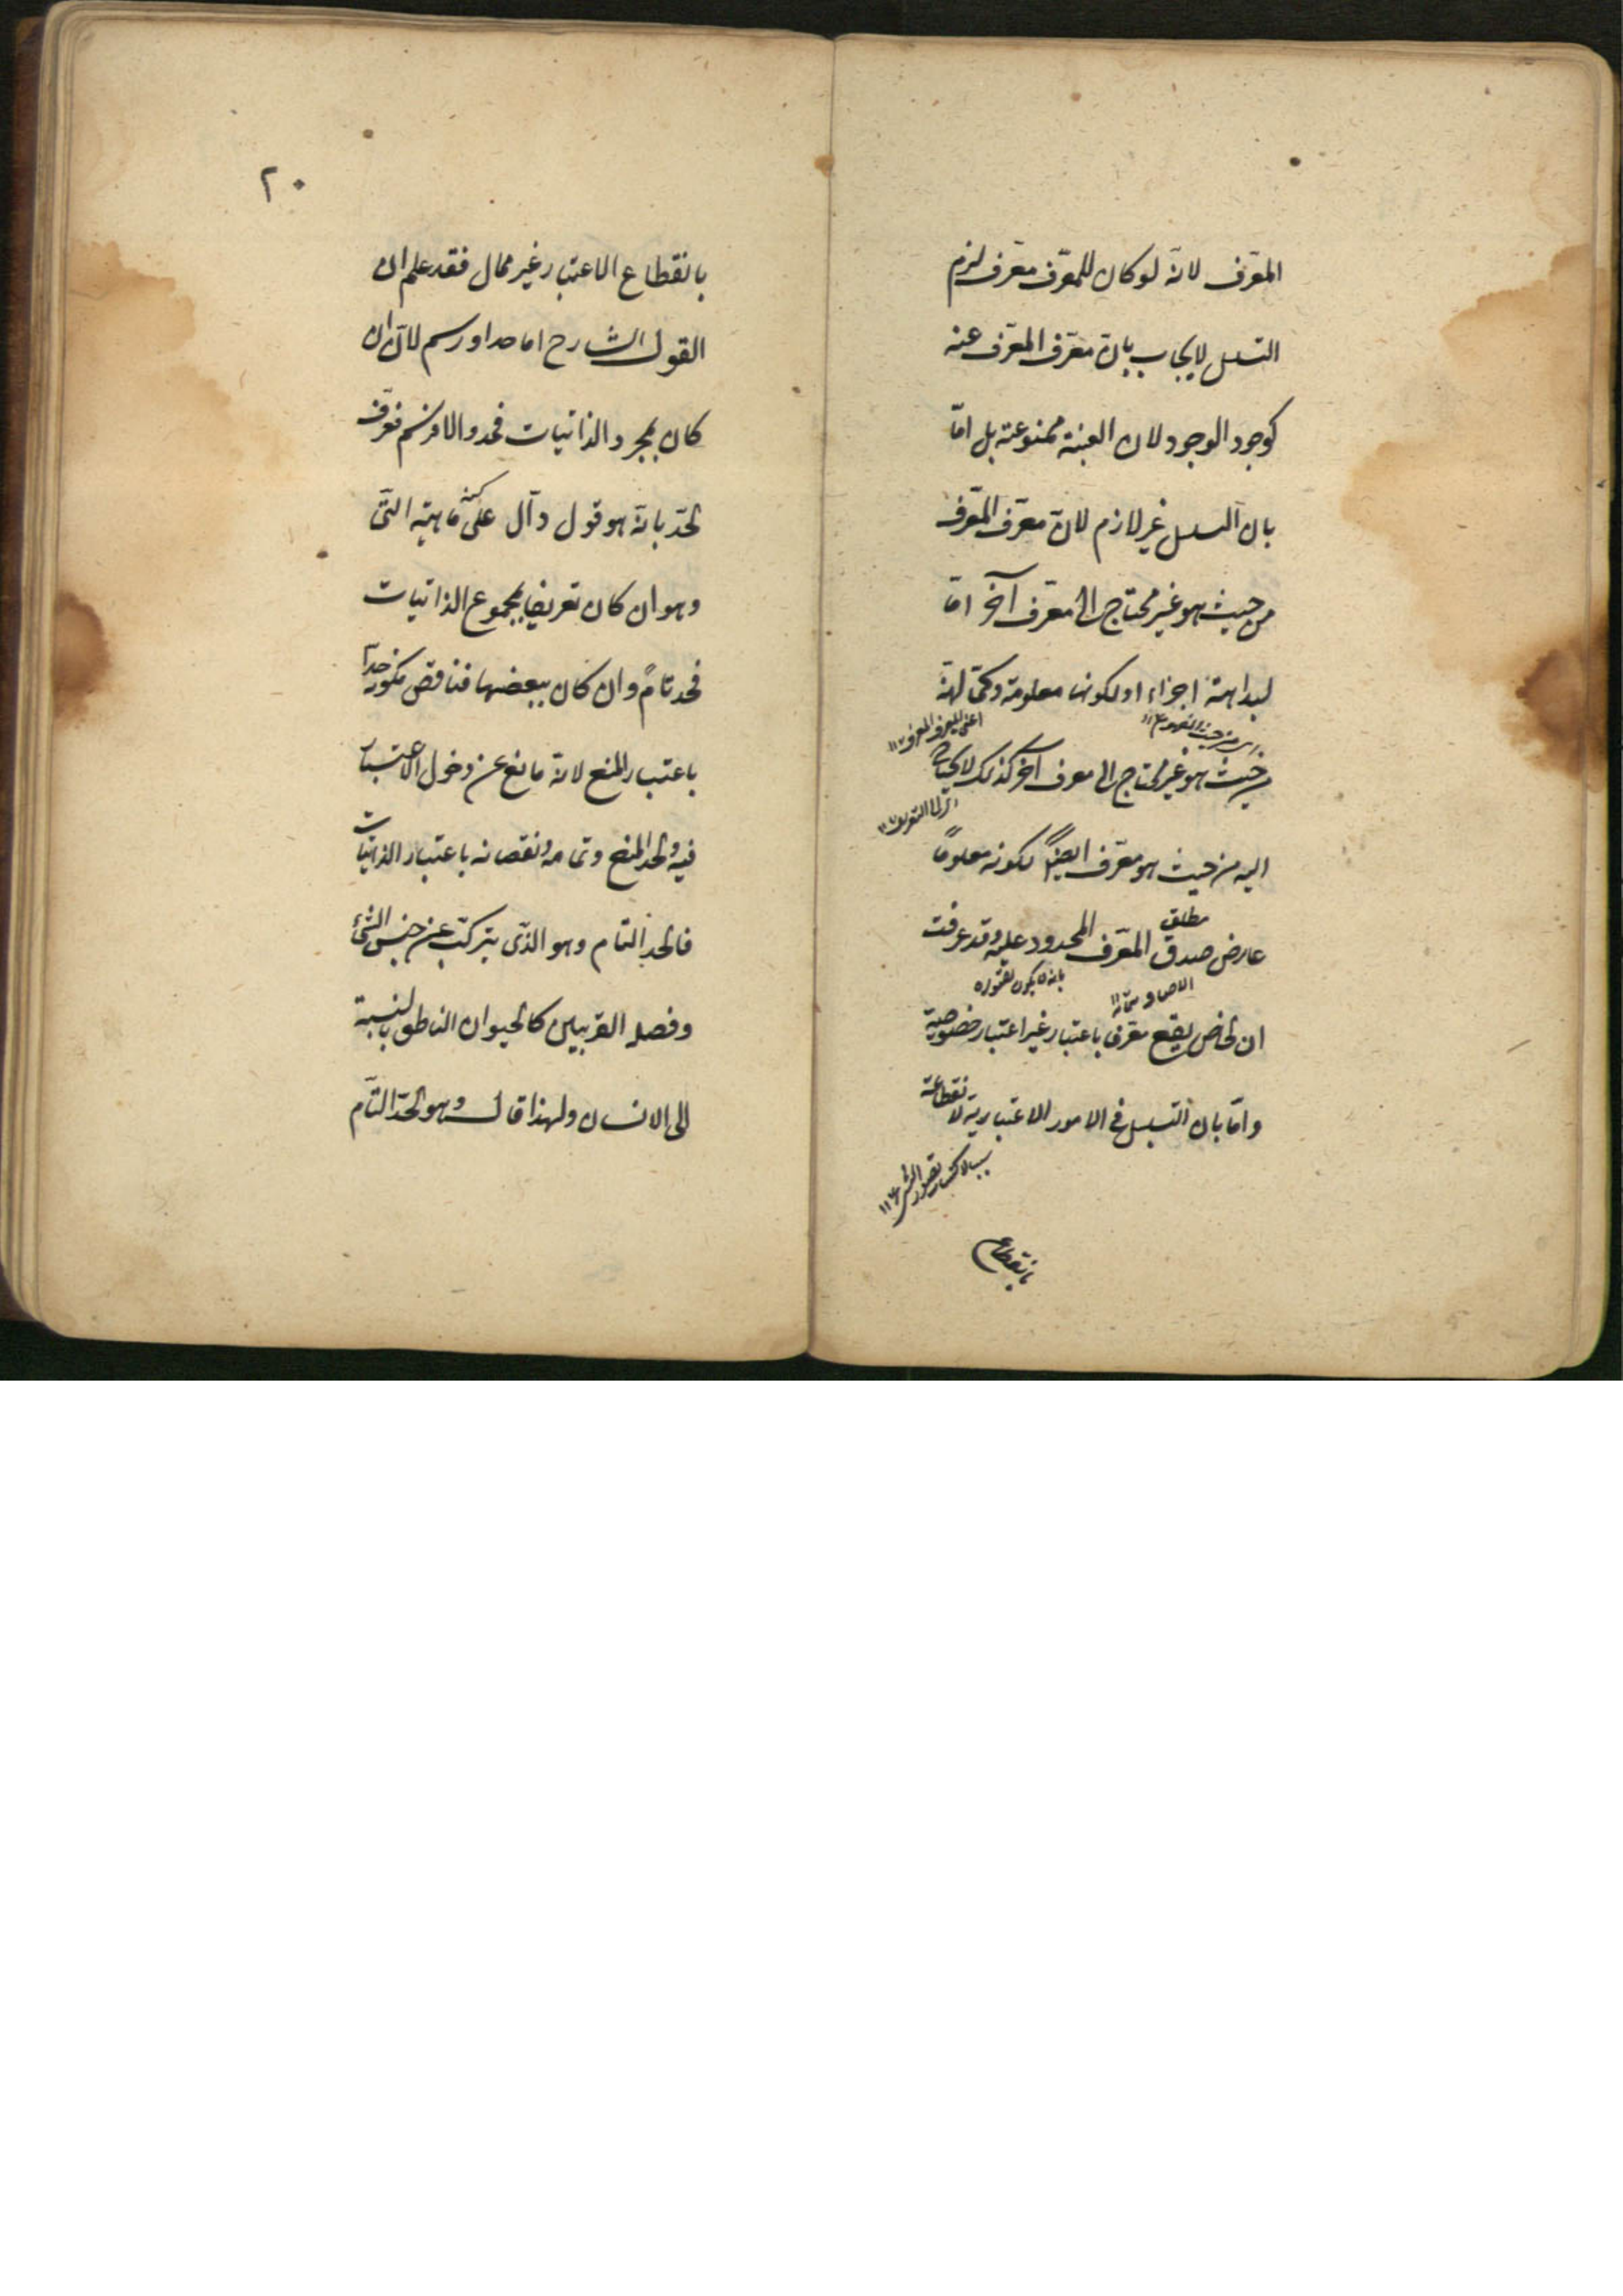 المعرّف لانّه لو كان للمعرّف معرّف لزم
التسلسل لا يجاب بانّ معرّف المعرّف عينه
كوجود الوجود لان العينية ممنوعة بل امّا
بان التسلسل غير لازم لانّ معرّف المعرّف
من حيث هو غير محتاج الى معرّف آخر امّا
لبداهة اجزائه او لكونها معلومة وكما انّه
اعنى المعرف المعرف ١٢
اى من حيث المفهوم ١٢
من حيث هو غير محتاج الى معرف آخر كذلك لا يحتاج
اى الى التعريف ١٢
اليه من حيث هو معرّف ايضاً لكونه معلوماً
مطلق
عارض صدق المعرّف المحدود عليه وقد عرفت
بان لا يكون تصوره
ان الخاص يقع معرفا باعتبار غير اعتبار خصوصية
وامّا بان التسلسل فى الامور الاعتبارية لانقطاعه
سببا لاكتساب تصور الشئ ١٢
بانقطاع
٢٠
بانقطاع الاعتبار غير محال فقد علم ان
القول الشارح اما حد او رسم لانّه ان
كان بمجرد الذاتيات فحد والا فرسم فعرّف
الحدّ بانّه هو قول دآل على كنه ماهية الشئ
وهو ان كان تعريفا بمجموع الذاتيات
فحد تامّ وان كان ببعضها فناقص فكونه حداً
باعتبار المنع لانّه مانع عن دخول الاغيار
فيه والحد المنع وتمامه ونقصانه باعتبار الذاتيات
فالحد التام وهو الذى يتركب عن جنس الشئ
وفصله القريبين كالحيوان الناطق بالنسبة
الى الانسان ولهذا قال وهو الحدّ التآم